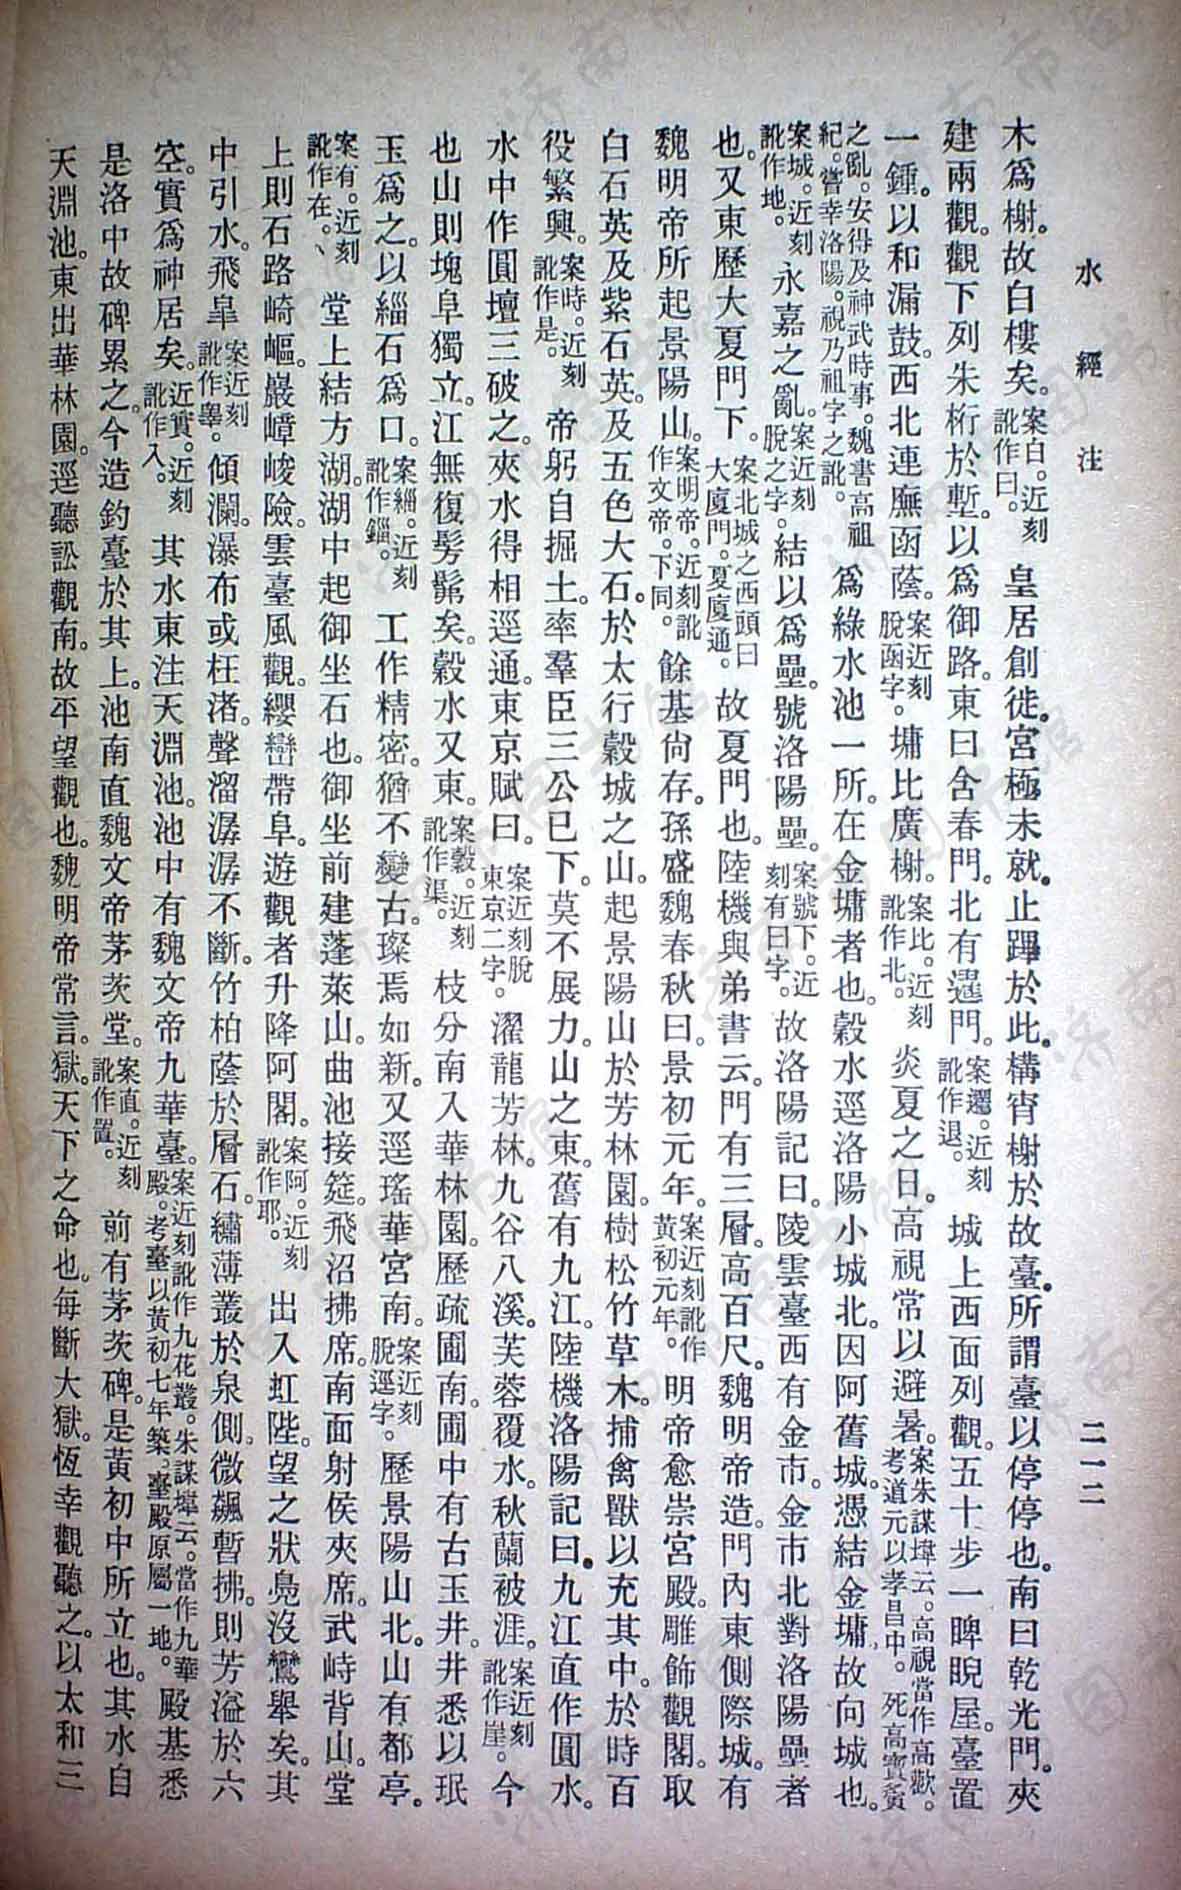 水經注
二一二
木爲榭。故白樓矣。案白。近刻訛作曰。皇居創徙。宮極未就。止蹕於此。構宵榭於故臺。所謂臺以停停也。南曰乾光門。夾
建兩觀。觀下列朱桁於塹。以爲御路。東曰含春門。北有𨓏門。案𨓏。近刻訛作退。城上西面列觀。五十步一睥睨屋。臺置
一鍾。以和漏鼓。西北連廡函蔭。案近刻脫函字。墉比廣榭。案比。近刻訛作北。炎夏之日。高視常以避暑。案朱謀㙔云。高視當作高歡。考道元以孝昌中。死高寶夤
之亂。安得及神武時事。魏書高祖紀。嘗幸洛陽。視乃祖字之訛。爲綠水池一所。在金墉者也。穀水逕洛陽小城北。因阿舊城。憑結金墉。故向城也。
案城。近刻訛作地。永嘉之亂。案近刻脫之字。結以爲壘。號洛陽壘。案號下。近刻有曰字。故洛陽記曰。陵雲臺西有金市。金市北對洛陽壘者
也。又東歷大夏門下。案北城之西頭曰大廈門。夏廈通。故夏門也。陸機與弟書云。門有三層。高百尺。魏明帝造。門內東側際城。有
魏明帝所起景陽山。案明帝。近刻訛作文帝。下同。餘基尙存。孫盛魏春秋曰。景初元年。案近刻訛作黃初元年。明帝愈崇宮殿。雕飾觀閣。取
白石英及紫石英。及五色大石。於太行穀城之山。起景陽山於芳林園。樹松竹草木。捕禽獸以充其中。於時百
役繁興。案時。近刻訛作是。帝躬自掘土。率羣臣三公已下。莫不展力。山之東。舊有九江。陸機洛陽記曰。九江直作圓水。
水中作圓壇三破之。夾水得相逕通。東京賦曰。案近刻脫東京二字。濯龍芳林。九谷八溪。芙蓉覆水。秋蘭被涯。案近刻訛作崖。今
也山則塊阜獨立。江無復髣髴矣。穀水又東。案穀。近刻訛作渠。枝分南入華林園。歷疏圃南。圃中有古玉井。井悉以珉
玉爲之。以緇石爲口。案緇。近刻訛作錙。工作精密。猶不變古。璨焉如新。又逕瑤華宮南。案近刻脫逕字。歷景陽山北。山有都亭。
案有。近刻訛作在。堂上結方湖。湖中起御坐石也。御坐前建蓬萊山。曲池接筵。飛沼拂席。南面射侯夾席。武峙背山。堂
上則石路崎嶇。巖嶂峻險。雲臺風觀。纓巒帶阜。遊觀者升降阿閣。案阿。近刻訛作耶。出入虹陛。望之狀鳧沒鸞舉矣。其
中引水。飛皐案近刻訛作睾。傾瀾。瀑布或枉渚。聲溜潺潺不斷。竹柏蔭於層石。繡薄叢於泉側。微飆暫拂。則芳溢於六
空。實爲神居矣。案實。近刻訛作入。其水東注天淵池。池中有魏文帝九華臺。案近刻訛作九花叢。朱謀㙔云。當作九華殿。考臺以黃初七年築。臺殿原屬一地。殿基悉
是洛中故碑累之。今造釣臺於其上。池南直魏文帝茅茨堂。案直。近刻訛作置。前有茅茨碑。是黃初中所立也。其水自
天淵池。東出華林園。逕聽訟觀南。故平望觀也。魏明帝常言。獄。天下之命也。每斷大獄。恆幸觀聽之。以太和三